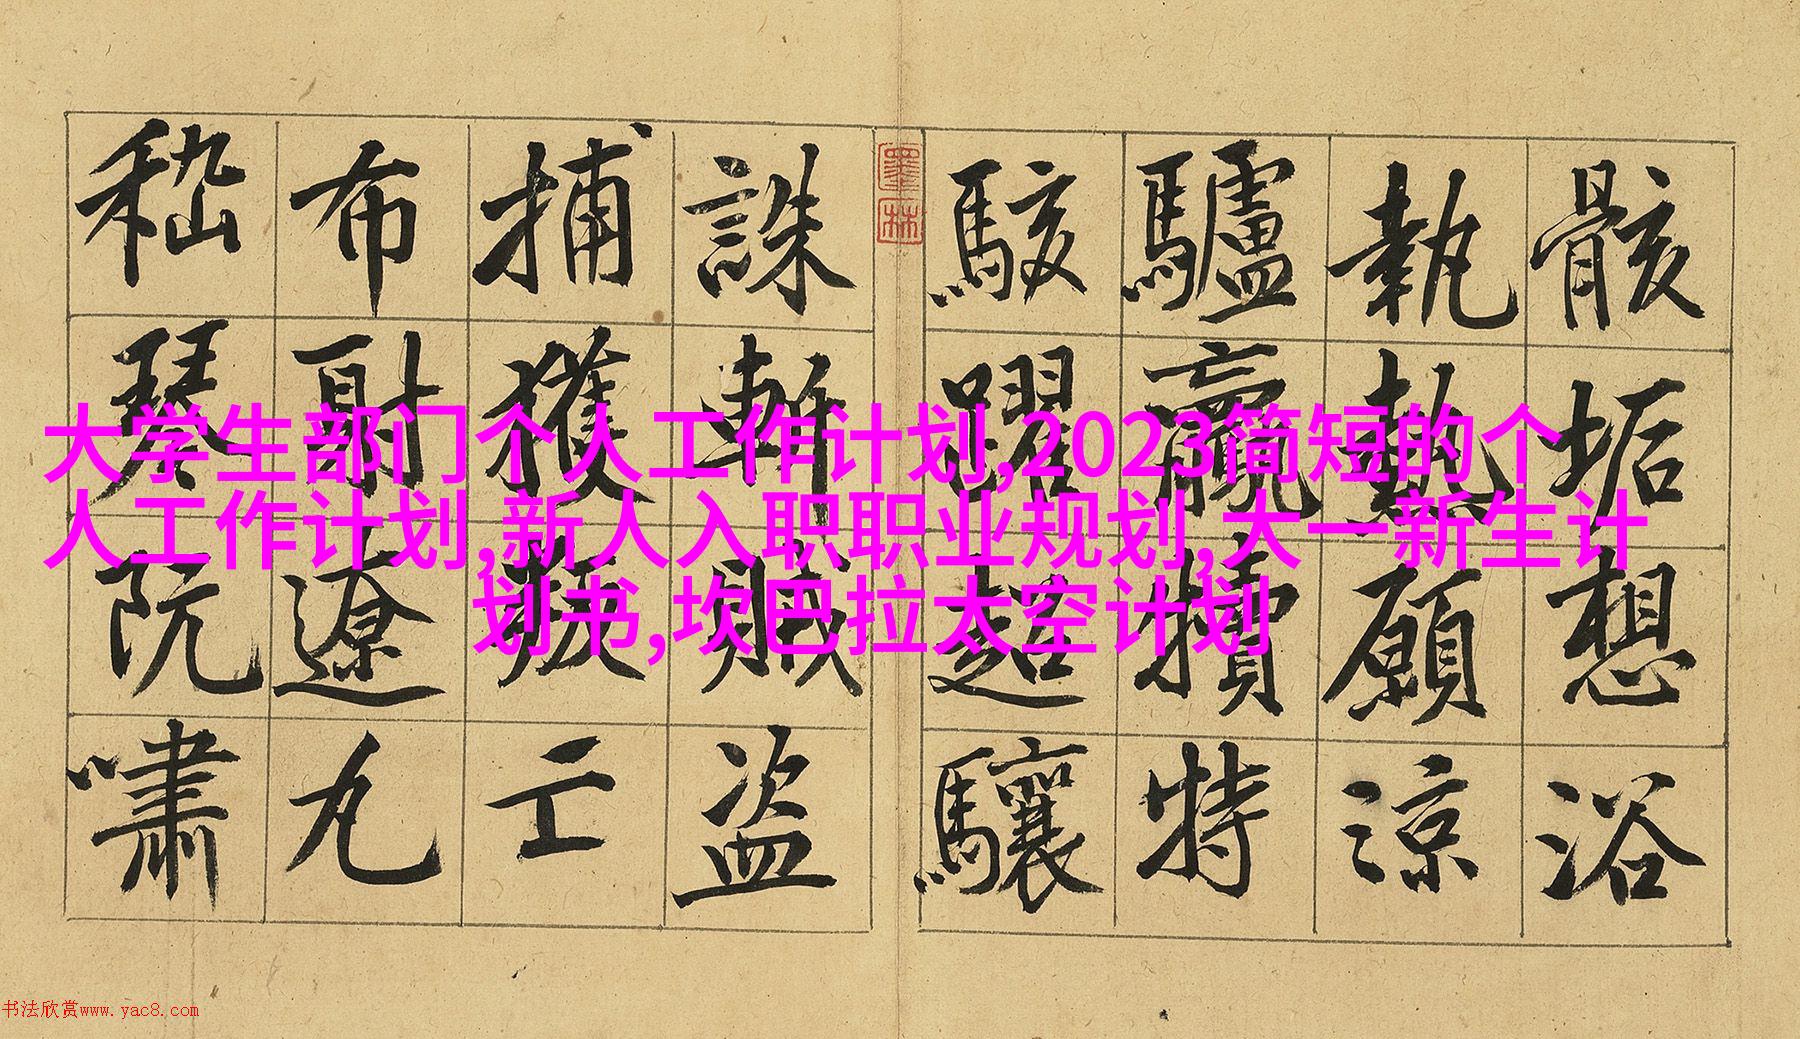 骸垢想浴
執熱願涼
驢犢特
駭躍超驤
墨林
誅斬賊盜
捕獲叛亡
布射遼丸
嵇琴阮嘯
大学生部门个人工作计划,2023简短的个
人工作计划,新人入职职业规划,大一新生计
划书,坎巴拉太空计划
书法欣赏www.yac8.com